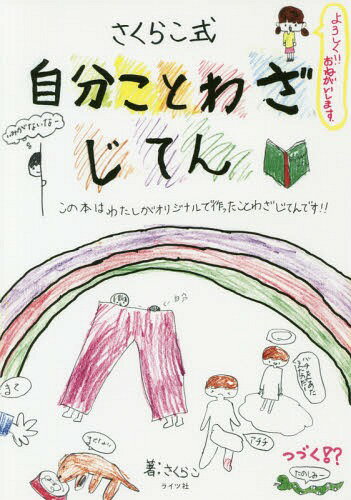 さくらこ式
よろしく!!
おねがいします。
自分ことわざ
じてん
この本はわたしがオリジナルで作ったことわざじてんです!!
自分
まて
アチチ
つづく!?
たのしみー
著:さくらこ
ライツ社